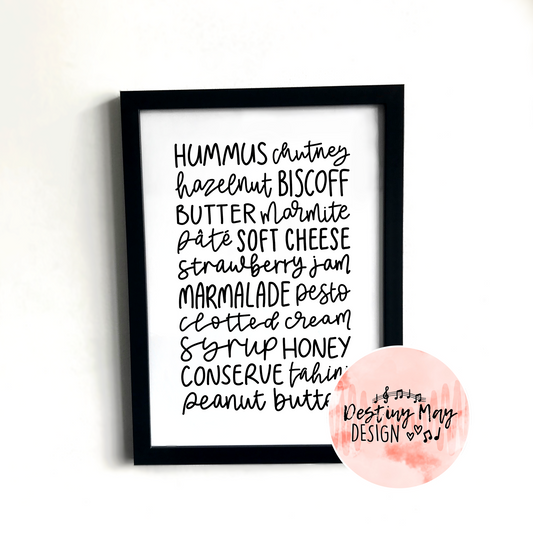 HUMMUS chutney
hazelnut BISCOFF
BUTTER marmite
pâté SOFT CHEESE
strawberry jam
MARMALADE pesto
clotted cream
syrup HONEY
CONSERVE tahini
peanut butter
Destiny May
DESIGN